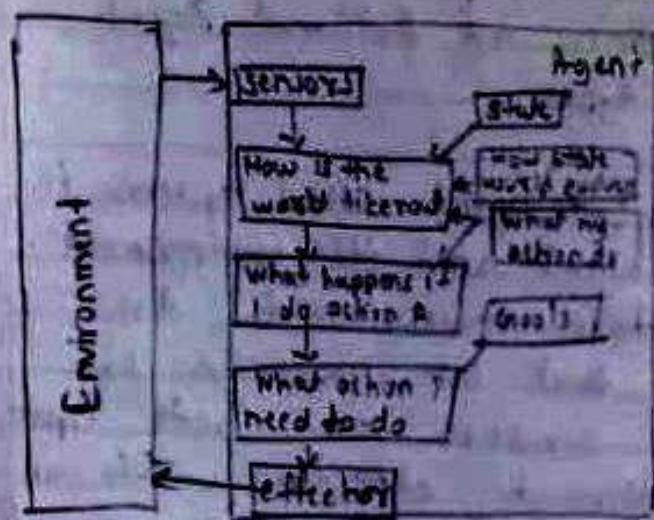 Agent
sensors
State
How is the
world like now
How state
world evolves
What my
action do
What happens if
I do action A
Goals
What action I
need to do
effector
Environment